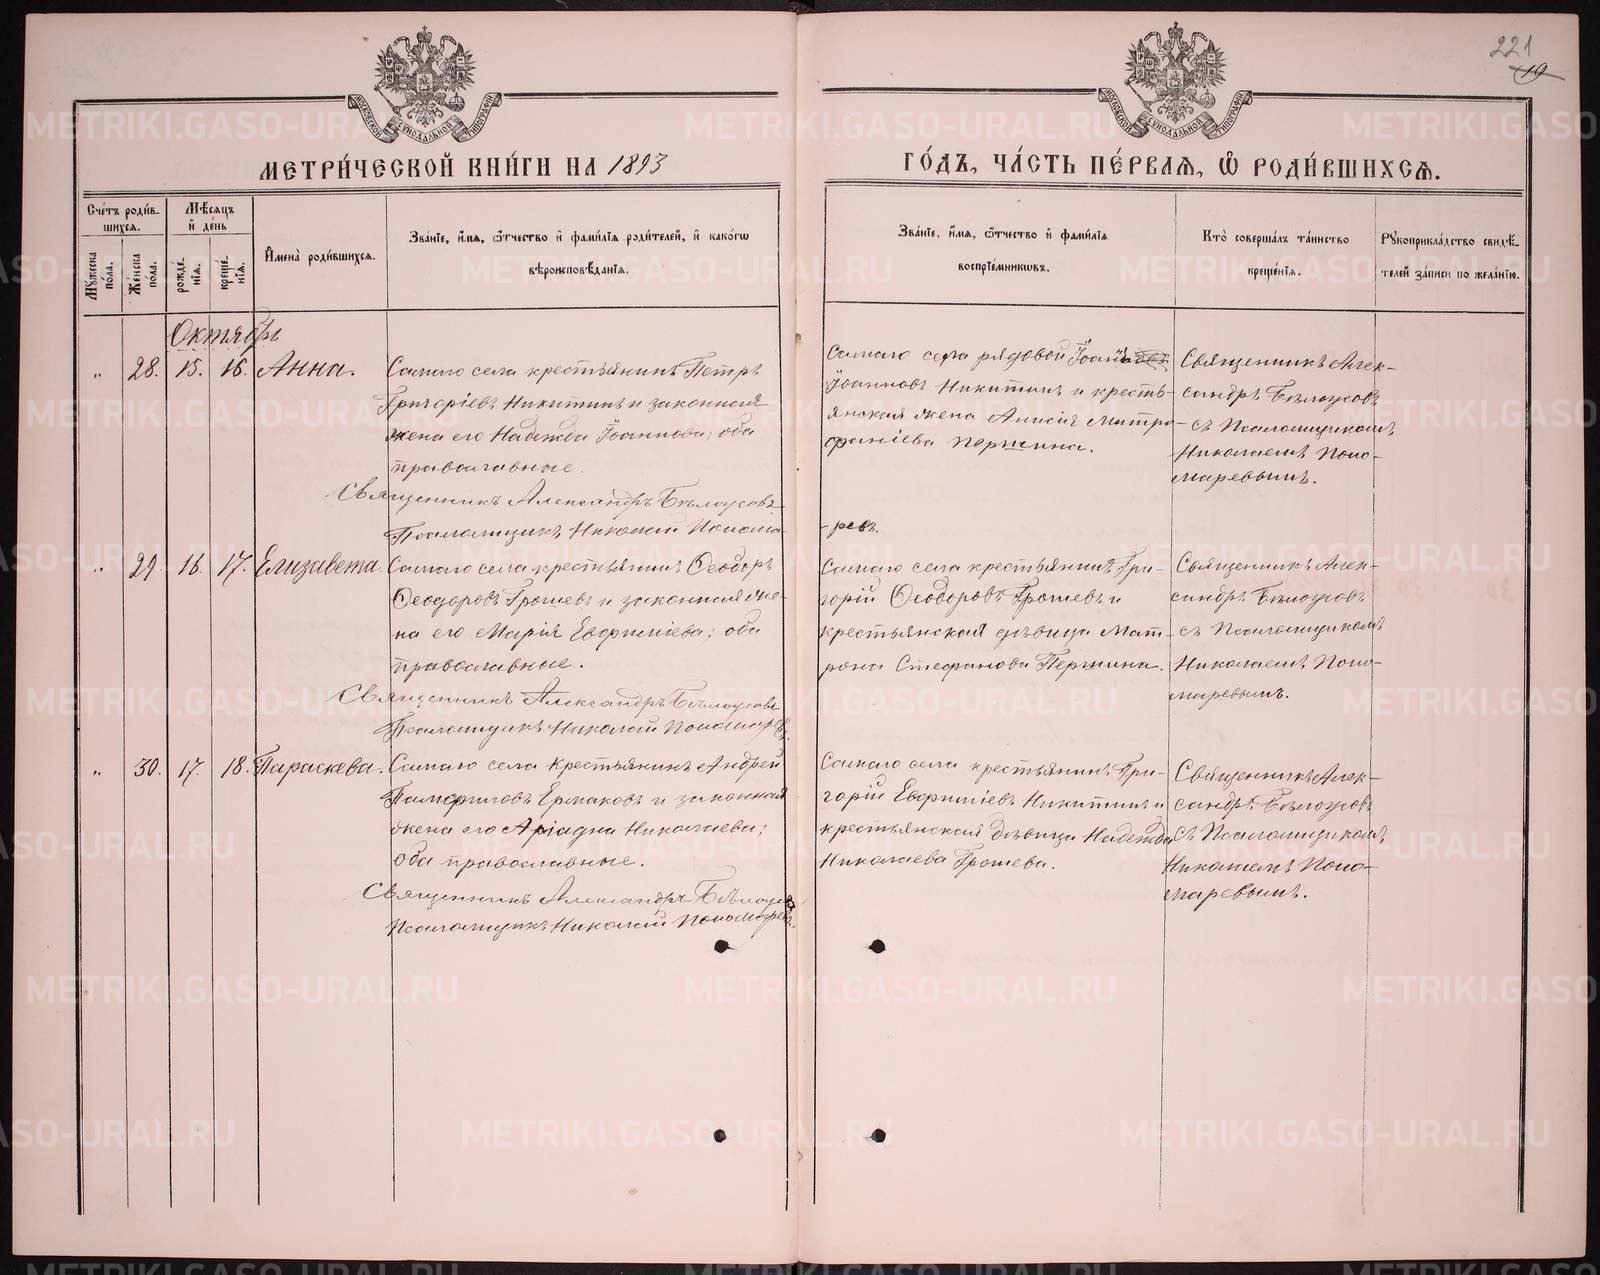 221
19
МОСКОВСКОЙ СѴНОДАЛЬНОЙ ТИПОГРАФІИ
МОСКОВСКОЙ СѴНОДАЛЬНОЙ ТИПОГРАФІИ
МЕТРИ́ЧЕСКОЙ КНИ́ГИ НА 1893
ГО́ДЪ, ЧА́СТЬ ПЕ́РВАЯ, Ѽ РОДИ́ВШИХСЯ.
Сче́тъ роди́в-
шихся.
Мѣ́сяцъ
и҆ де́нь
Мꙋ́жеска
по́ла.
Же́нска
по́ла.
рожде́-
нїя.
креще́-
нїя.
И҆мена̀ роди́вшихся.
Зва́нїе, и҆́мя, ѻ҆́тчество и҆ фами́лїя роди́телей, и҆ како́гѡ
вѣроисповѣ́данїя.
Зва́нїе, и҆́мя, ѻ҆́тчество и҆ фами́лїя
воспрїе́мниковъ.
Кто̀ соверша́лъ та́инство
креще́нїя.
Рꙋкоприкла́дство свидѣ́-
телей за́писи по жела́нїю.
Октябрь
„ 28. 15. 16. Анна.
Самаго села крестьянинъ Петръ
Григоріевъ Никитинъ и законная
жена его Надежда Іоаннова; оба
православные.
Священникъ Александръ Бѣлоусовъ
Псаломщикъ Николай Понома-
Самаго села рядовой
Іоанновъ Никитинъ и кресть-
янская жена Анисія Митро-
фаніева Першина.
-ревъ.
Священникъ Алек-
сандръ Бѣлоусовъ
съ Псаломщикомъ
Николаемъ Поно-
маревымъ.
„ 29 16. 17. Елизавета.
Самаго села крестьянинъ Ѳеодоръ
Ѳеодоровъ Грошевъ и законная же-
на его Марія Евфиміева; оба
православные.
Священникъ Александръ Бѣлоусовъ
Псаломщикъ Николай Пономаревъ.
Самаго села крестьянинъ Гри-
горій Ѳеодоровъ Грошевъ и
крестьянская дѣвица Мат-
рона Стефанова Першина.
Священникъ Алек-
сандръ Бѣлоусовъ
съ Псаломщикомъ
Николаемъ Поно-
маревымъ.
„ 30. 17. 18. Параскева.
Самаго села крестьянинъ Андрей
Памфиловъ Ермаковъ и законная
жена его Аріадна Николаева;
оба православные.
Священникъ Александръ Бѣлоусовъ
Псаломщикъ Николай Пономаревъ.
Самаго села крестьянинъ Гри-
горій Евфиміевъ Никитинъ и
крестьянская дѣвица Надежда
Николаева Грошева.
Священникъ Алек-
сандръ Бѣлоусовъ
съ Псаломщикомъ
Николаемъ Поно-
маревымъ.
METRIKI.GASO-URAL.RU